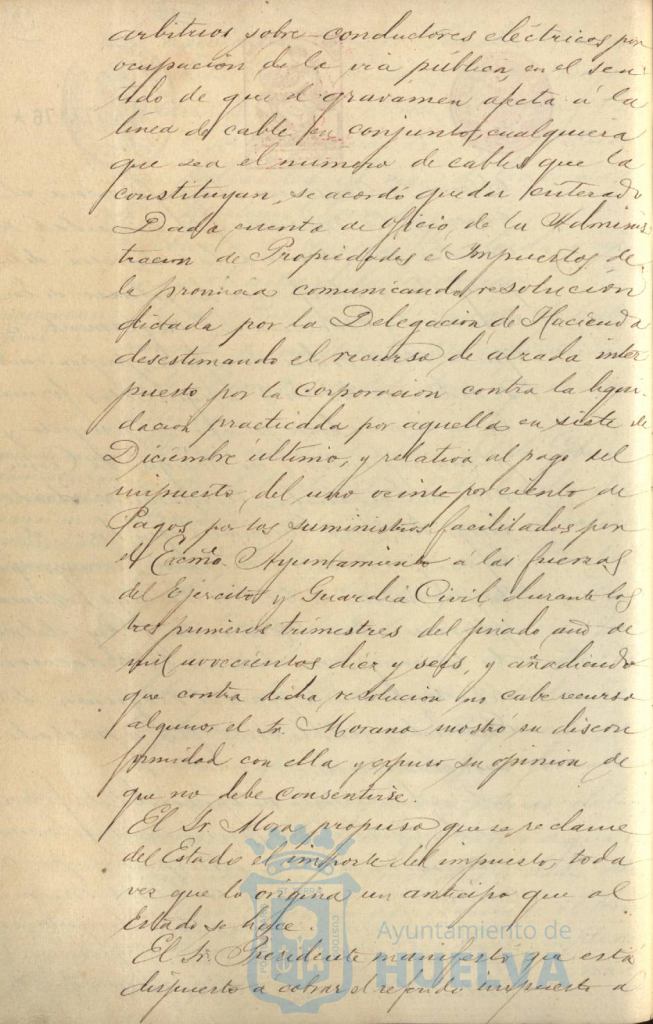 arbitrios sobre conductores eléctricos por
ocupación de la via pública, en el sen-
tido de que el gravamen afecta á la
línea de cable en conjunto, cualquiera
que sea el número de cables que la
constituyan, se acordó quedar enterado
Dada cuenta de oficio de la Adminis
tracion de Propiedades é Impuestos de
la provincia comunicando resolución
dictada por la Delegación de Hacienda
desestimando el recurso de alzada inter
puesto por la Corporación contra la liqui-
dación practicada por aquella en siete de
Diciembre último, y relativa al pago del
impuesto del uno veinte por ciento de
Pagos por los suministros facilitados por
el Excmo. Ayuntamiento á las fuerzas
del Ejército y Guardia Civil durante los
tres primeros trimestres del pasado año de
mil novecientos diez y seis, y añadiendo
que contra dicha resolución no cabe recurso
alguno, el Sr. Morano mostró su discon
formidad con ella y expuso su opinion de
que no debe consentirse.
El Sr. Mora propuso que se reclame
del Estado el importe del impuesto, toda
vez que lo origina un anticipo que al
Estado se hace.
El Sr. Presidente manifestó que está
dispuesto a cobrar el referido impuesto a
Ayuntamiento de
HUELVA